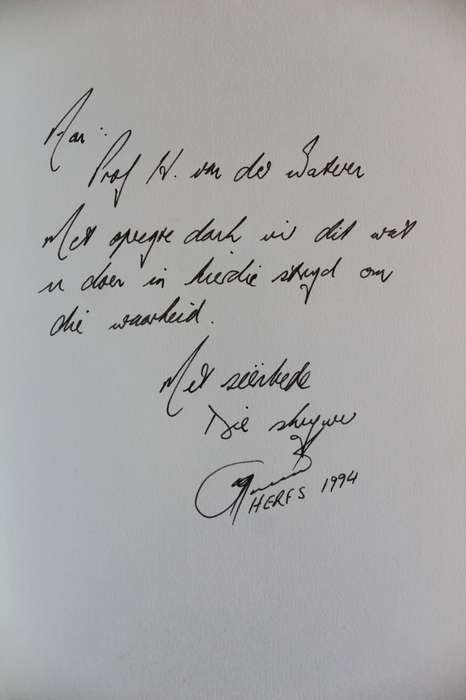 Aan:
Prof H. van der Wateren
Met opregte dank vir dit wat
u doen in hierdie stryd om
die waarheid.
Met seënbede
Die skrywer
HERFS 1994